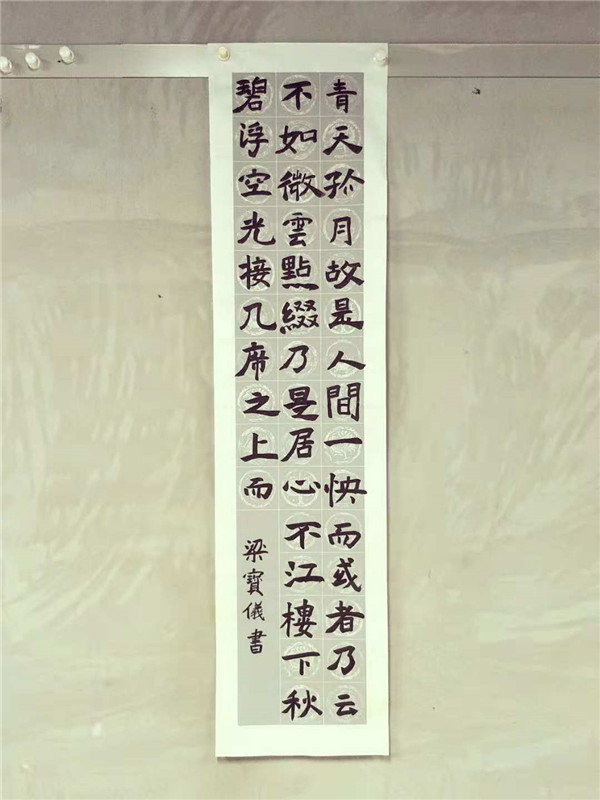 青天孤月故是人間一快而或者乃云
不如微雲點綴乃是居心不江樓下秋
碧浮空光接几席之上而
梁寶儀書